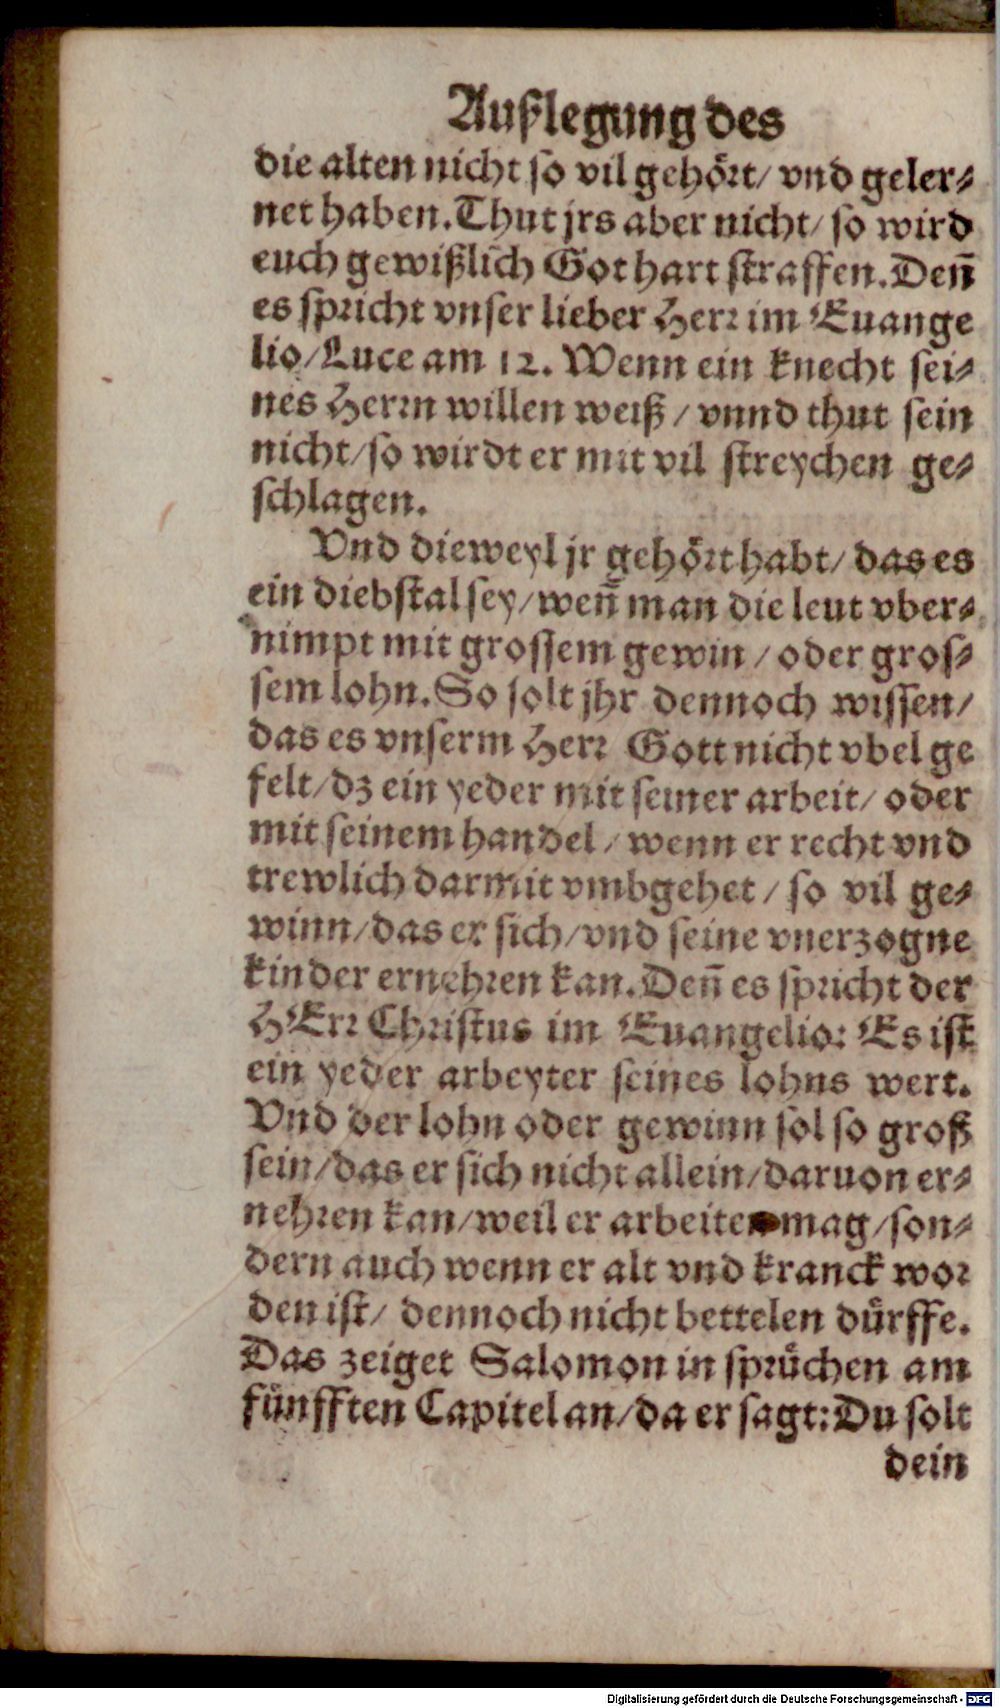 Außlegung des
die alten nicht so vil gehört/ vnd geler⸗
net haben. Thut jrs aber nicht/ so wird
euch gewißlich Got hart straffen. Deñ
es spricht vnser lieber Herr im Euange
lio/ Luce am 12. Wenn ein knecht sei⸗
nes Herrn willen weiß / vnnd thut sein
nicht/ so wirdt er mit vil streychen ge⸗
schlagen.
Vnd dieweyl jr gehört habt/ das es
ein diebstal sey/ weñ man die leut vber⸗
nimpt mit grossem gewin / oder gros⸗
sem lohn. So solt jhr dennoch wissen/
das es vnserm Herr Gott nicht vbel ge
felt/ dz ein yeder mit seiner arbeit/ oder
mit seinem handel / wenn er recht vnd
trewlich darmit vmbgehet / so vil ge⸗
winn/ das er sich/ vnd seine vnerzogne
kinder ernehren kan. Deñ es spricht der
HErr Christus im Euangelio: Es ist
ein yeder arbeyter seines lohns wert.
Vnd der lohn oder gewinn sol so groß
sein/ das er sich nicht allein/ daruon er⸗
nehren kan/ weil er arbeiten mag/ son⸗
dern auch wenn er alt vnd kranck wor
den ist/ dennoch nicht bettelen dürffe.
Das zeiget Salomon in sprüchen am
fünfften Capitel an/ da er sagt: Du solt
dein
Digitalisierung gefördert durch die Deutsche Forschungsgemeinschaft - DFG